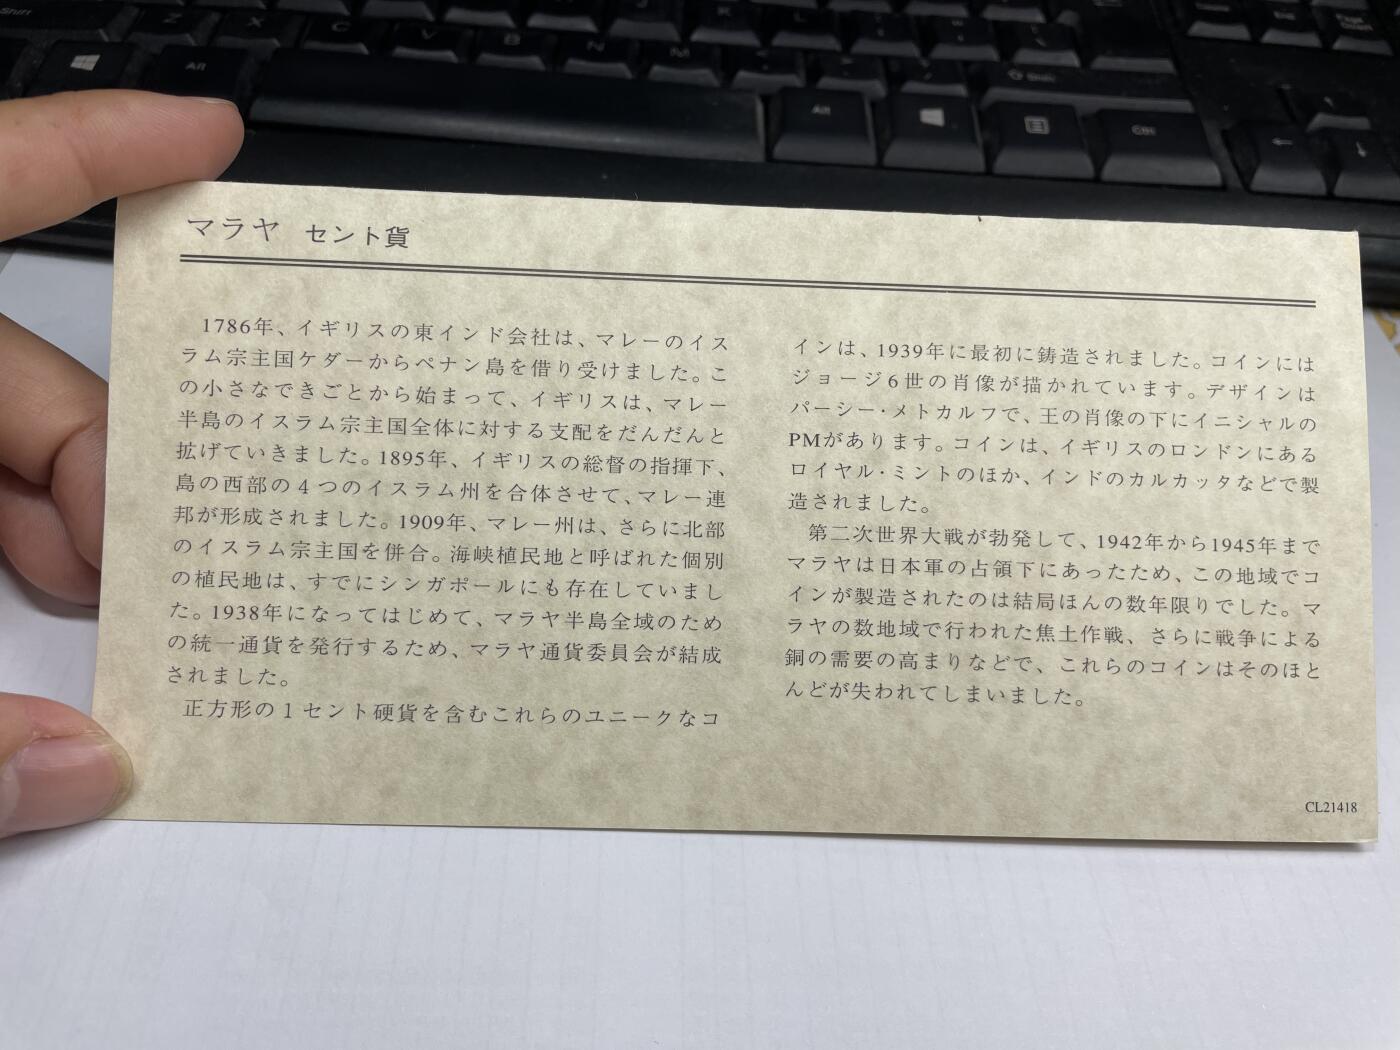 Shift
Z
X
C
V
B
N
M
Alt
Shift
Alt
Ctrl
マラヤ セント貨
1786年、イギリスの東インド会社は、マレーのイス
ラム宗主国ケダーからペナン島を借り受けました。こ
の小さなできごとから始まって、イギリスは、マレー
半島のイスラム宗主国全体に対する支配をだんだんと
拡げていきました。1895年、イギリスの総督の指揮下、
島の西部の4つのイスラム州を合体させて、マレー連
邦が形成されました。1909年、マレー州は、さらに北部
のイスラム宗主国を併合。海峡植民地と呼ばれた個別
の植民地は、すでにシンガポールにも存在していまし
た。1938年になってはじめて、マラヤ半島全域のため
の統一通貨を発行するため、マラヤ通貨委員会が結成
されました。
正方形の1セント硬貨を含むこれらのユニークなコ
インは、1939年に最初に鋳造されました。コインには
ジョージ6世の肖像が描かれています。デザインは
パーシー・メトカルフで、王の肖像の下にイニシャルの
PMがあります。コインは、イギリスのロンドンにある
ロイヤル・ミントのほか、インドのカルカッタなどで製
造されました。
第二次世界大戦が勃発して、1942年から1945年まで
マラヤは日本軍の占領下にあったため、この地域でコ
インが製造されたのは結局ほんの数年限りでした。マ
ラヤの数地域で行われた焦土作戦、さらに戦争による
銅の需要の高まりなどで、これらのコインはそのほと
んどが失われてしまいました。
CL21418